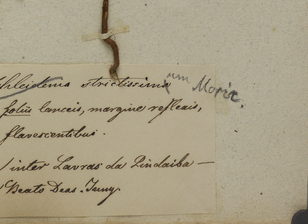 strictissima um Moric.
foliis lanceis, margine reflexis,
flavescentibus.
inter Lavras da Pindaiba —
Beato Deas.